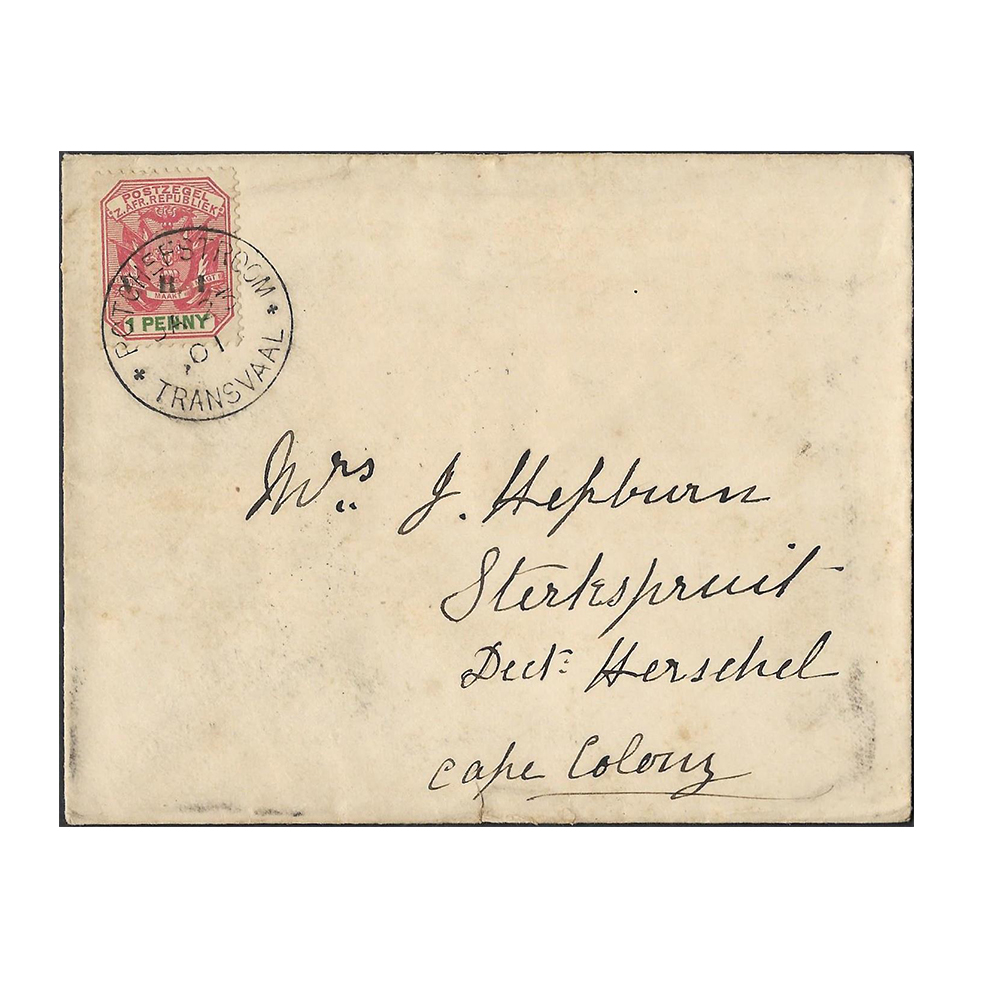 POSTZEGEL
Z. AFR. REPUBLIEK
MAAKT
1 PENNY
POTCHEFSTROOM
01
TRANSVAAL
Mrs. J. Hepburn
Sterkspruit
Dect: Herschel
Cape Colony